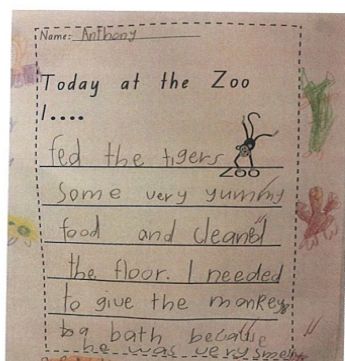 Name: Anthony
Today at the Zoo
I....
fed the tigers
ZOO
some very yummy
food and cleaned
the floor. I needed
to give the monkey
a bath because
he was very smelly